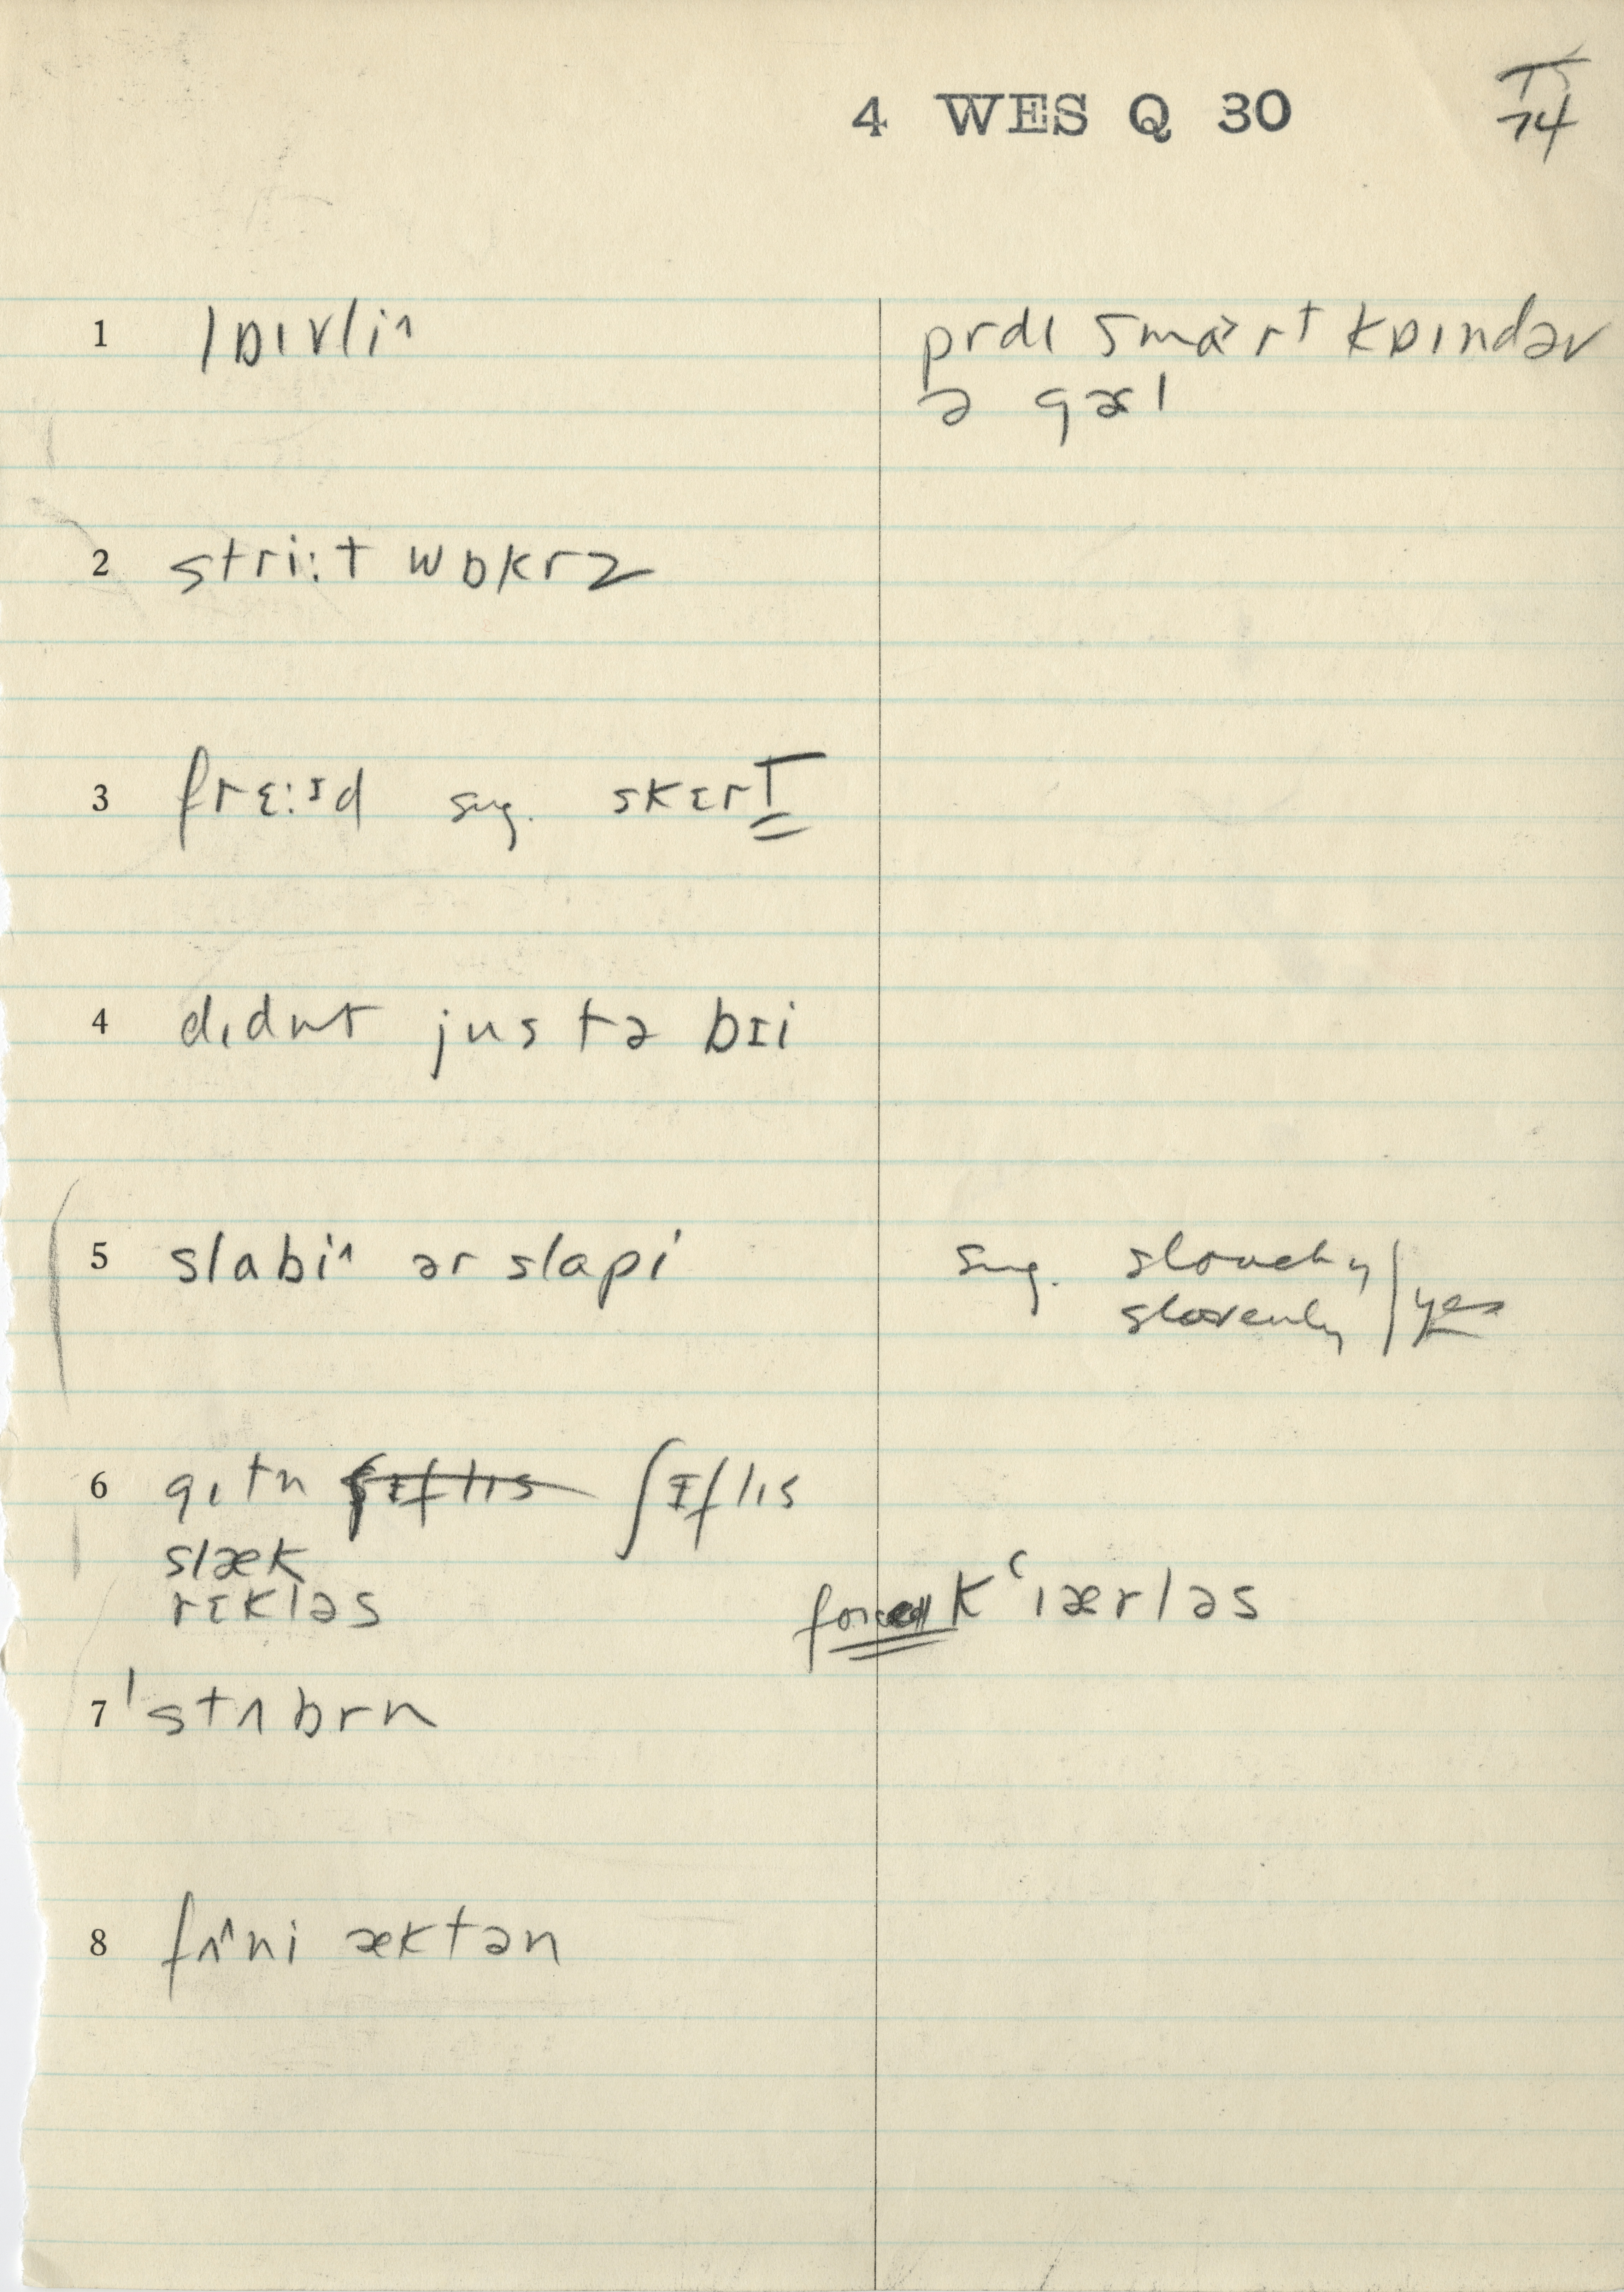 4 WES Q 30
T5
74
1 lɒɪvli^ prdɪ smɑ˃rt kɒɪndəv
ə gəɛl
2 stri:t wɒkrz
3 frɛ:ɪd sug. skɛrT
4 dɪdnt jus tə bɪi
5 slabi^ ər slapi sug. slouchy
slovenly | yes
6 gɪtn ʃɪflɪs ʃɪflɪs
slæk
rɛkləs forced kʿɪærləs
7 ˈstʌbrn
8 fʌ^ni æktən